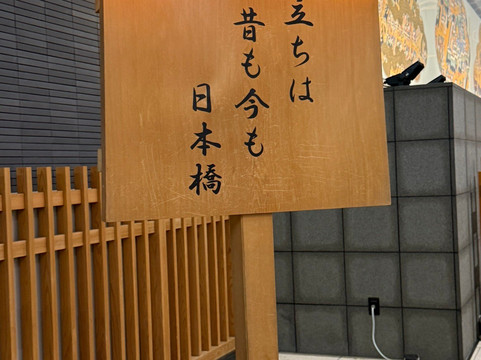 立ちは
昔も今も
日本橋